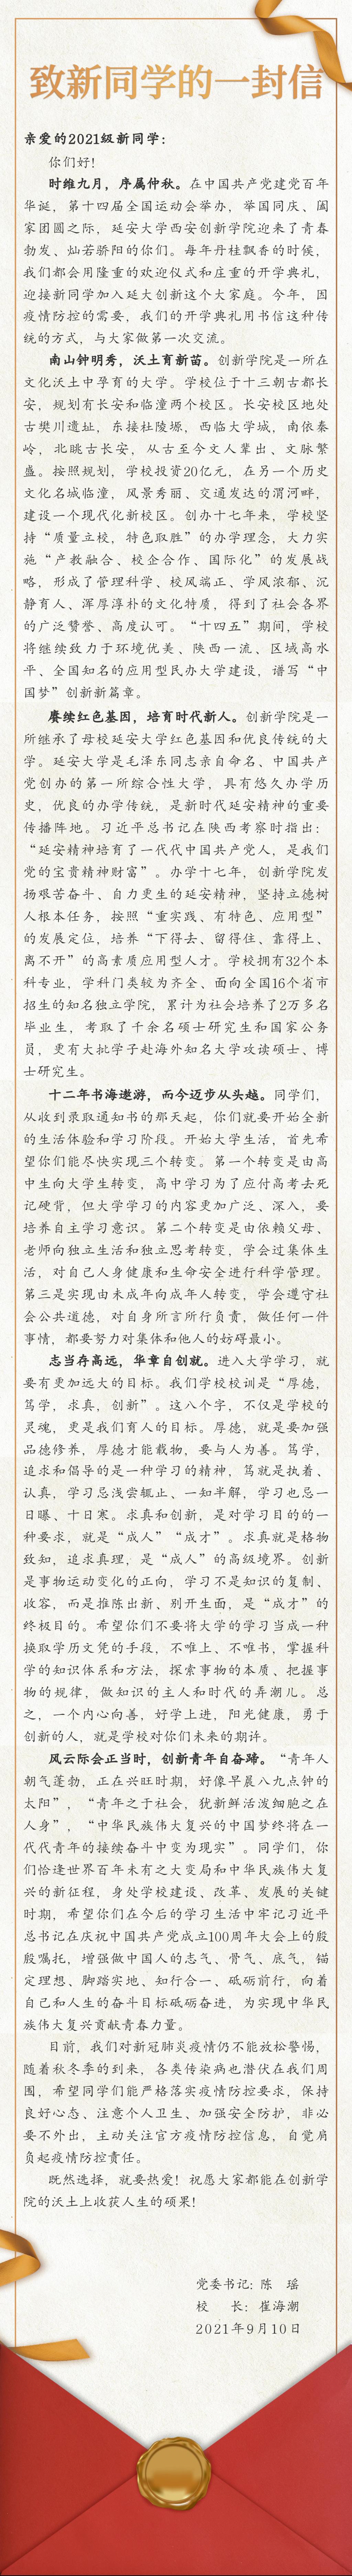 致新同学的一封信
亲爱的2021级新同学：
你们好！
时维九月，序属仲秋。在中国共产党建党百年
华诞，第十四届全国运动会举办，举国同庆、阖
家团圆之际，延安大学西安创新学院迎来了青春
勃发、灿若骄阳的你们。每年丹桂飘香的时候，
我们都会用隆重的欢迎仪式和庄重的开学典礼，
迎接新同学加入延大创新这个大家庭。今年，因
疫情防控的需要，我们的开学典礼用书信这种传
统的方式，与大家做第一次交流。
南山钟明秀，沃土育新苗。创新学院是一所在
文化沃土中孕育的大学。学校位于十三朝古都长
安，规划有长安和临潼两个校区。长安校区地处
古樊川遗址，东接杜陵塬，西临大学城，南依秦
岭，北眺古长安，从古至今文人辈出、文脉繁
盛。按照规划，学校投资20亿元，在另一个历史
文化名城临潼，风景秀丽、交通发达的渭河畔，
建设一个现代化新校区。创办十七年来，学校坚
持“质量立校，特色取胜”的办学理念，大力实
施“产教融合、校企合作、国际化”的发展战
略，形成了管理科学、校风端正、学风浓郁、沉
静育人、浑厚淳朴的文化特质，得到了社会各界
的广泛赞誉、高度认可。“十四五”期间，学校
将继续致力于环境优美、陕西一流、区域高水
平、全国知名的应用型民办大学建设，谱写“中
国梦”创新新篇章。
赓续红色基因，培育时代新人。创新学院是一
所继承了母校延安大学红色基因和优良传统的大
学。延安大学是毛泽东同志亲自命名、中国共产
党创办的第一所综合性大学，具有悠久办学历
史，优良的办学传统，是新时代延安精神的重要
传播阵地。习近平总书记在陕西考察时指出：
“延安精神培育了一代代中国共产党人，是我们
党的宝贵精神财富”。办学十七年，创新学院发
扬艰苦奋斗、自力更生的延安精神，坚持立德树
人根本任务，按照“重实践、有特色、应用型”
的发展定位，培养“下得去、留得住、靠得上、
离不开”的高素质应用型人才。学校拥有32个本
科专业，学科门类较为齐全、面向全国16个省市
招生的知名独立学院，累计为社会培养了2万多名
毕业生，考取了千余名硕士研究生和国家公务
员，更有大批学子赴海外知名大学攻读硕士、博
士研究生。
十二年书海遨游，而今迈步从头越。同学们，
从收到录取通知书的那天起，你们就要开始全新
的生活体验和学习阶段。开始大学生活，首先希
望你们能尽快实现三个转变。第一个转变是由高
中生向大学生转变，高中学习为了应付高考去死
记硬背，但大学学习的内容更加广泛、深入，要
培养自主学习意识。第二个转变是由依赖父母、
老师向独立生活和独立思考转变，学会过集体生
活，对自己人身健康和生命安全进行科学管理。
第三是实现由未成年向成年人转变，学会遵守社
会公共道德，对自身所言所行负责，做任何一件
事情，都要努力对集体和他人的妨碍最小。
志当存高远，华章自创就。进入大学学习，就
要有更加远大的目标。我们学校校训是“厚德，
笃学，求真，创新”。这八个字，不仅是学校的
灵魂，更是我们育人的目标。厚德，就是要加强
品德修养，厚德才能载物，要与人为善。笃学，
追求和倡导的是一种学习的精神，笃就是执着、
认真，学习忌浅尝辄止、一知半解，学习也忌一
日曝、十日寒。求真和创新，是对学习目的的一
种要求，就是“成人”“成才”。求真就是格物
致知，追求真理，是“成人”的高级境界。创新
是事物运动变化的正向，学习不是知识的复制、
收容，而是推陈出新、别开生面，是“成才”的
终极目的。希望你们不要将大学的学习当成一种
换取学历文凭的手段，不唯上、不唯书，掌握科
学的知识体系和方法，探索事物的本质、把握事
物的规律，做知识的主人和时代的弄潮儿。总
之，一个内心向善，好学上进，阳光健康，勇于
创新的人，就是学校对你们未来的期许。
风云际会正当时，创新青年自奋蹄。“青年人
朝气蓬勃，正在兴旺时期，好像早晨八九点钟的
太阳”，“青年之于社会，犹新鲜活泼细胞之在
人身”，“中华民族伟大复兴的中国梦终将在一
代代青年的接续奋斗中变为现实”。同学们，你
们恰逢世界百年未有之大变局和中华民族伟大复
兴的新征程，身处学校建设、改革、发展的关键
时期，希望你们在今后的学习生活中牢记习近平
总书记在庆祝中国共产党成立100周年大会上的殷
殷嘱托，增强做中国人的志气、骨气、底气，锚
定理想、脚踏实地、知行合一、砥砺前行，向着
自己和人生的奋斗目标砥砺奋进，为实现中华民
族伟大复兴贡献青春力量。
目前，我们对新冠肺炎疫情仍不能放松警惕，
随着秋冬季的到来，各类传染病也潜伏在我们周
围，希望同学们能严格落实疫情防控要求，保持
良好心态、注意个人卫生、加强安全防护，非必
要不外出，主动关注官方疫情防控信息，自觉肩
负起疫情防控责任。
既然选择，就要热爱！祝愿大家都能在创新学
院的沃土上收获人生的硕果！
党委书记：陈　瑶
校　　长：崔海潮
2021年9月10日